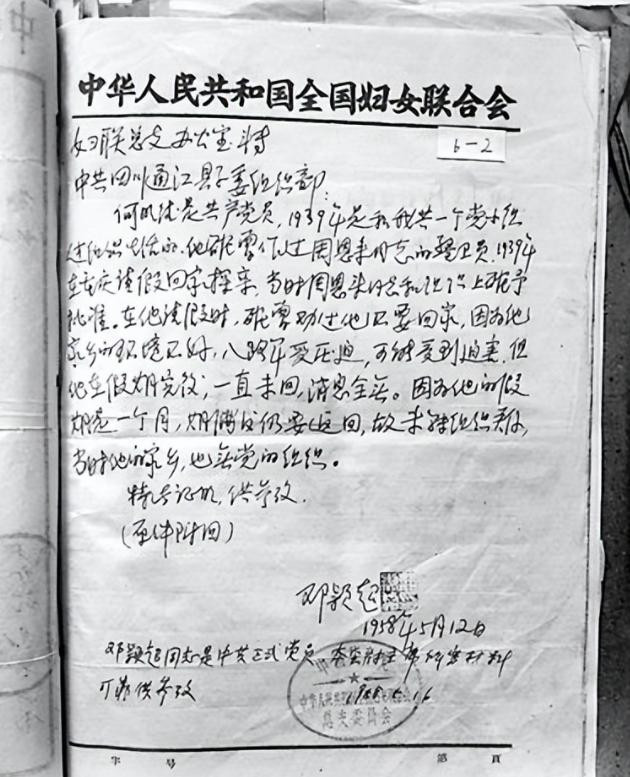 中华人民共和国全国妇女联合会
妇联总支办公室转
6-2
中共四川通江县委组织部:
何明德是共产党员,1939年是和我共一个党小组
过组织生活的。他确曾作过周恩来同志的警卫员。1939年
在重庆请假回家探亲,当时周恩来同志和组织上确予
批准。在他请假时,确曾劝过他不要回家,因为他
家乡的环境不好,八路军受压迫,可能受到迫害。但
他在假期完后,一直未回,消息全无。因为他的假
期是一个月,期满后仍要返回,故未转组织关系,
当时他的家乡,也无党的组织。
特此证明,供参考。
(原件附回)
邓颖超
1958年5月12日
邓颖超同志是中共正式党员
可靠供参考
总支委员会
字 号 第 頁